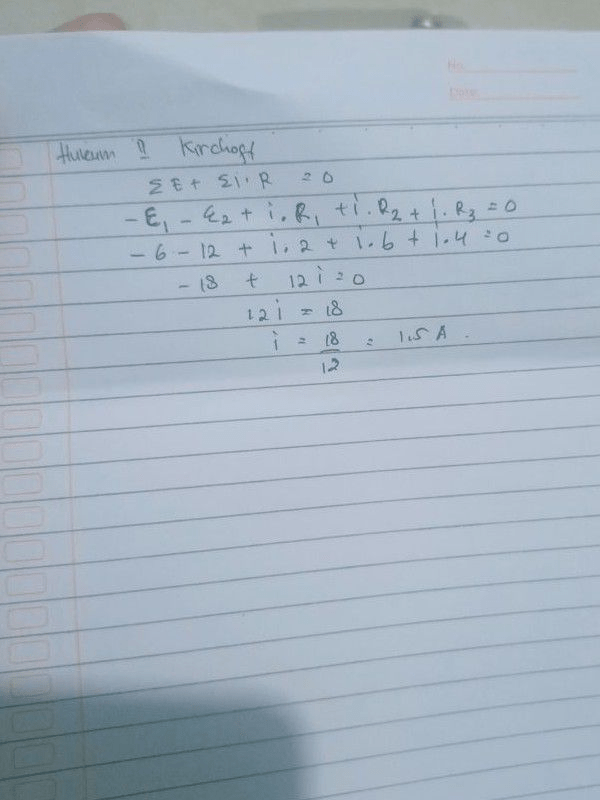 No.
Date:
Hukum II Kirchoff
ΣE + Σi.R = 0
-E₁ - E₂ + i.R₁ + i.R₂ + i.R₃ = 0
-6 - 12 + i.2 + i.6 + i.4 = 0
-18 + 12i = 0
12i = 18
i = 18/12 = 1.5 A.